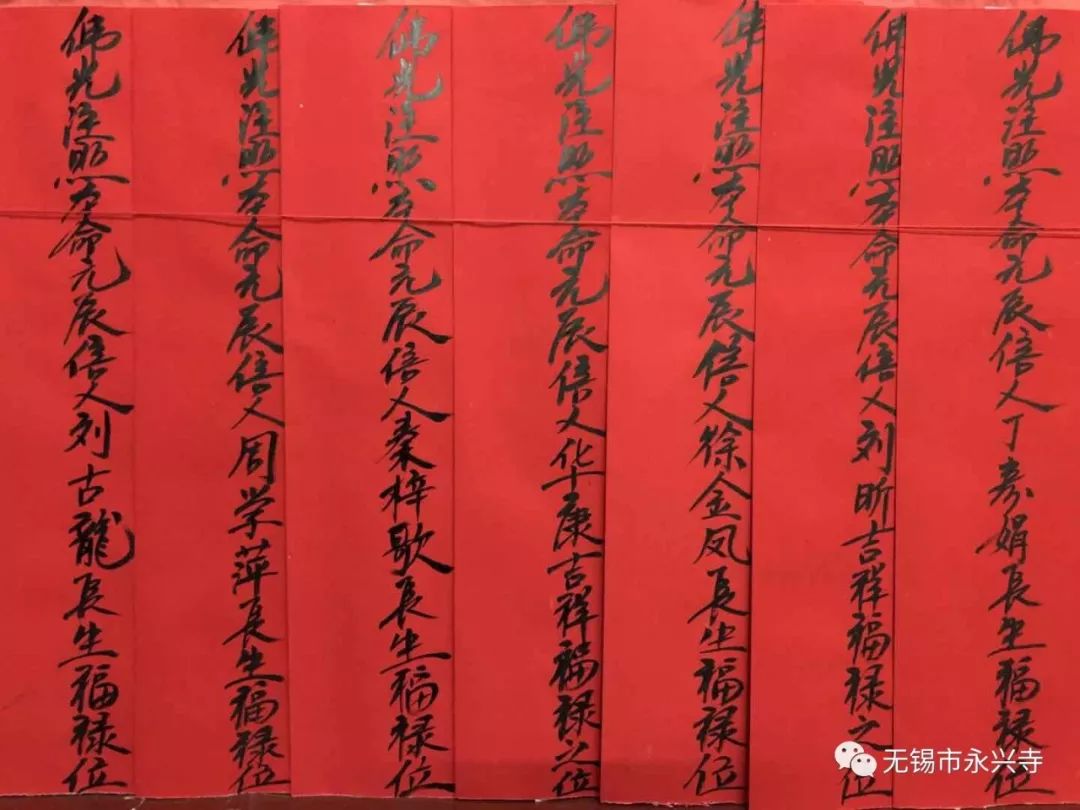 佛光注照本命元辰信人丁寿娟長生福禄位
佛光注照本命元辰信人刘昕吉祥福禄之位
佛光注照本命元辰信人徐金凤長生福禄位
佛光注照本命元辰信人华康吉祥福禄之位
佛光注照本命元辰信人秦梓歌長生福禄位
佛光注照本命元辰信人周学萍長生福禄位
佛光注照本命元辰信人刘古龍長生福禄位
无锡市永兴寺